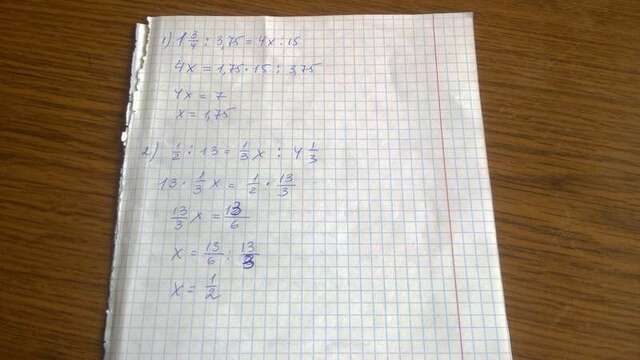 1) 1 3/4 : 3,75 = 4x : 15
4x = 1,75 · 15 : 3,75
4x = 7
x = 1,75
2) 1/2 : 13 = 1/3 x : 4 1/3
13 · 1/3 x = 1/2 · 13/3
13/3 x = 13/6
x = 13/6 : 13/3
x = 1/2